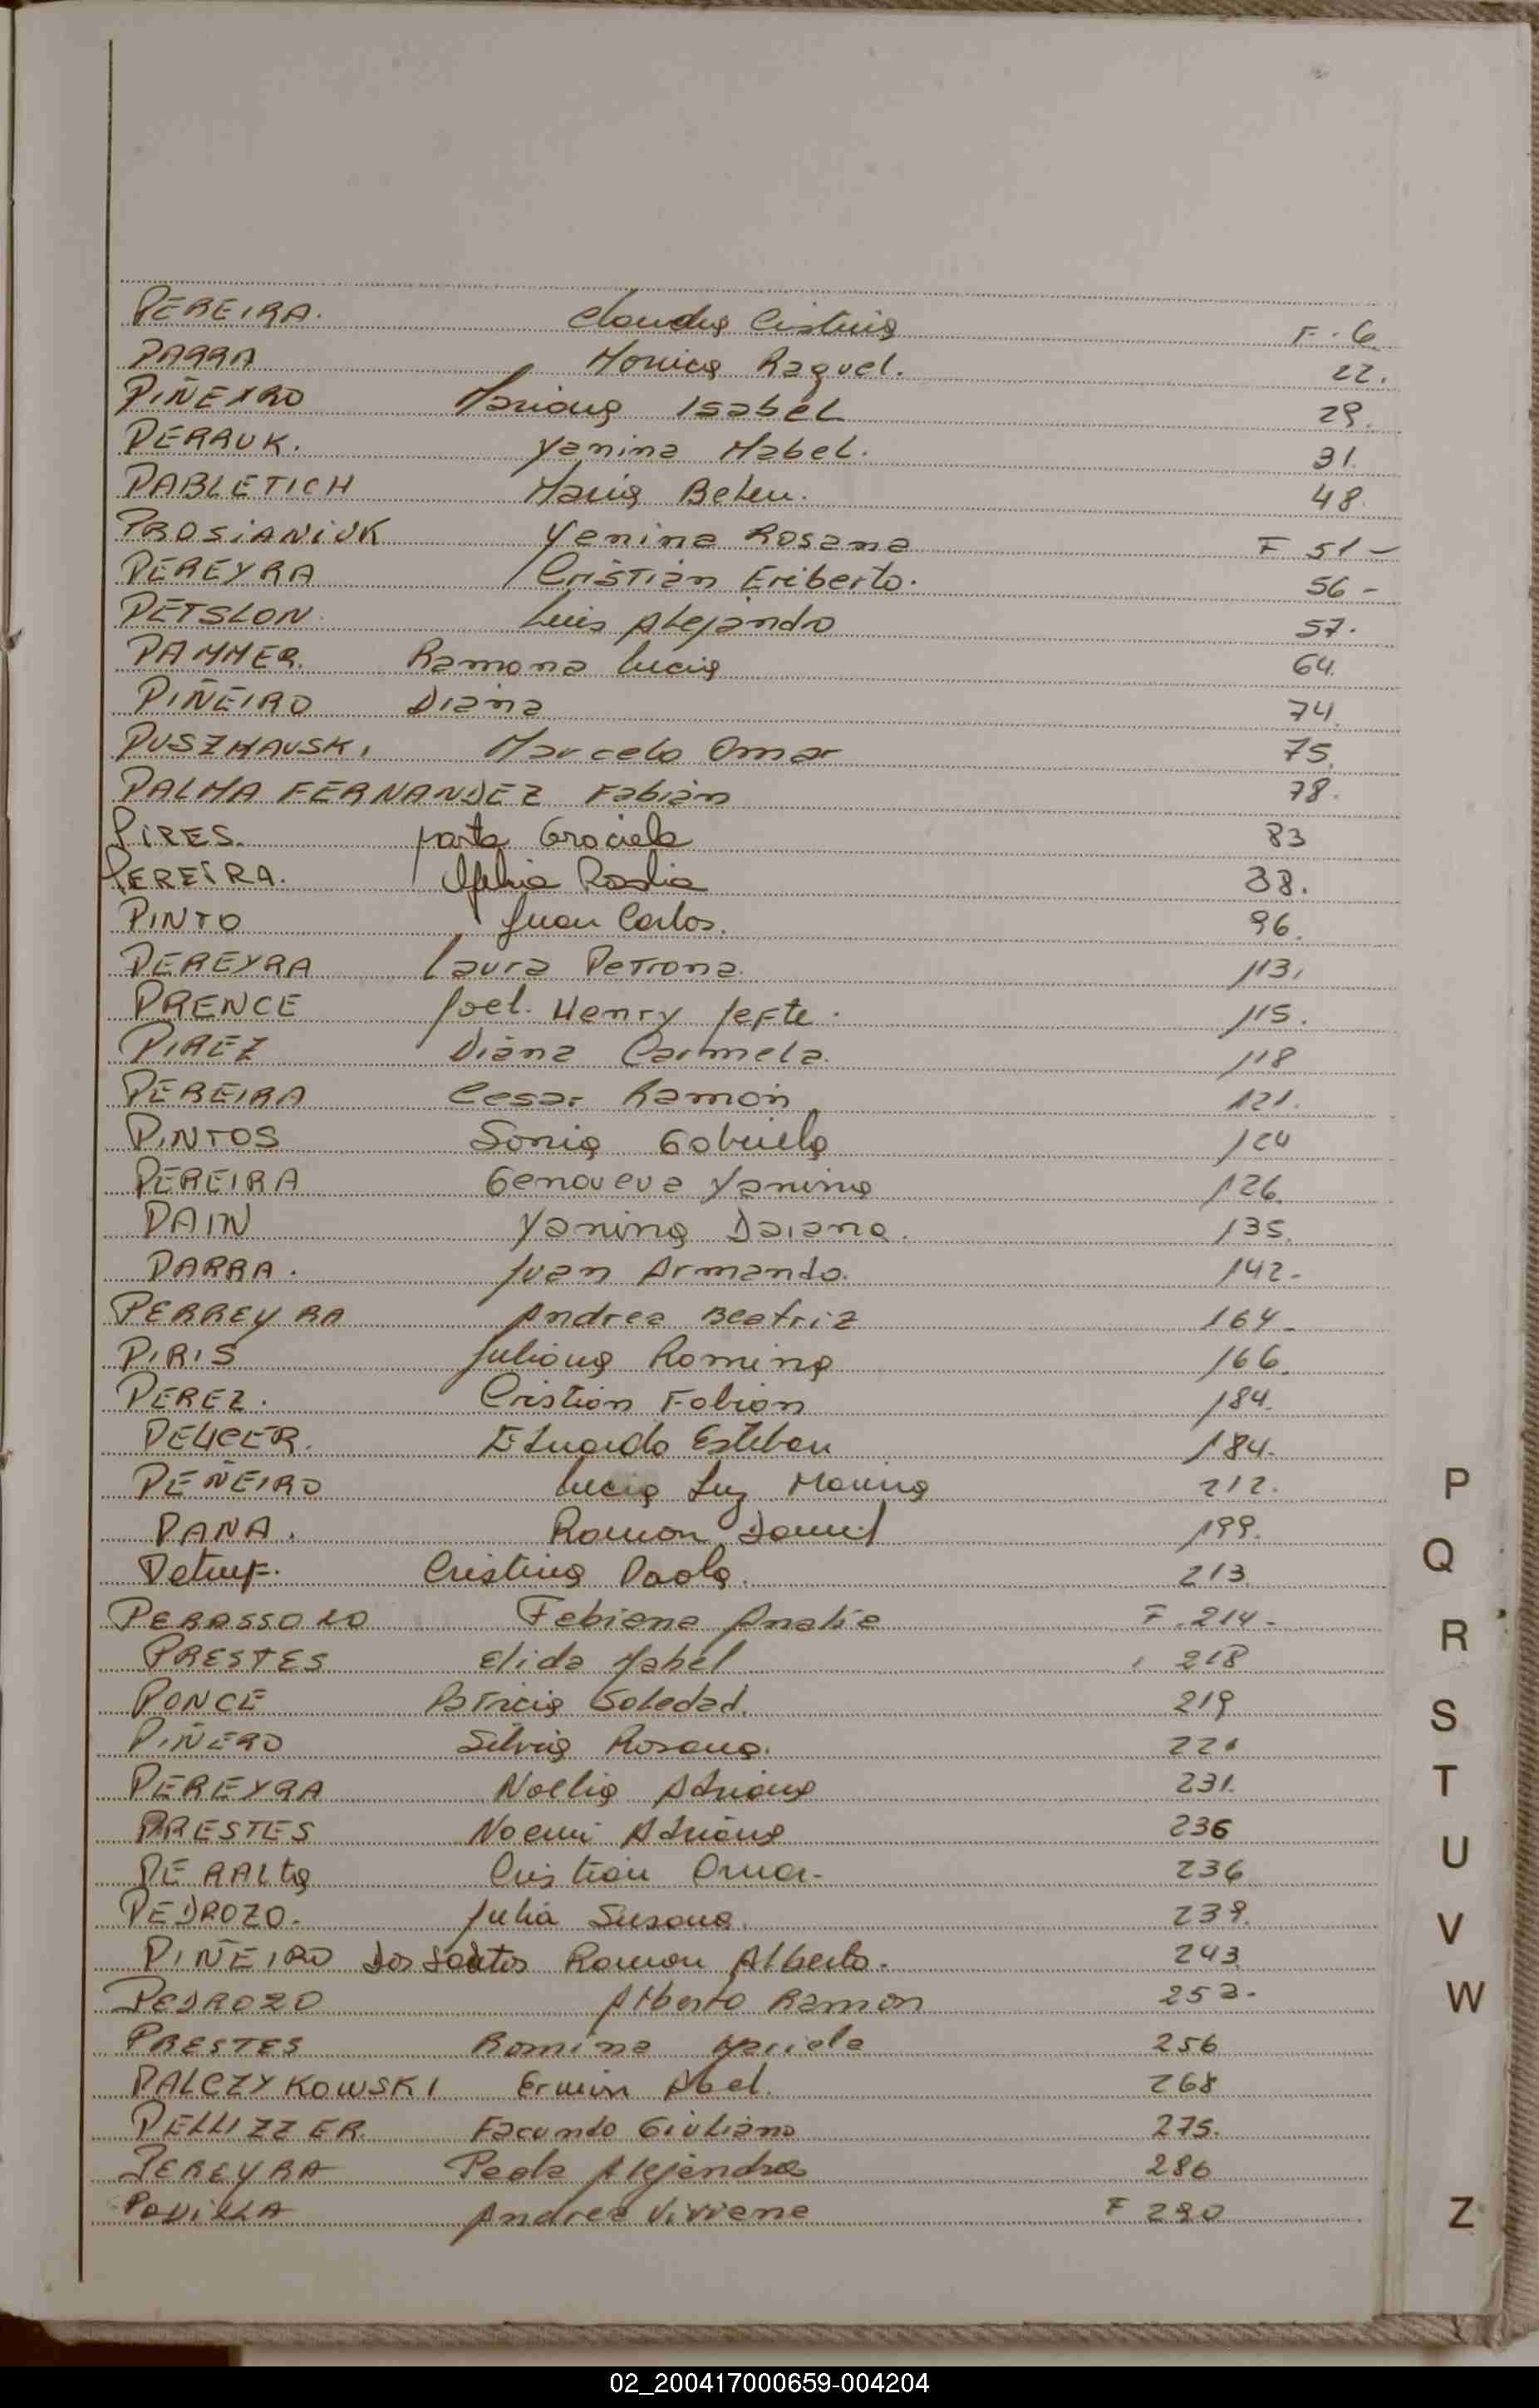 PEREIRA. Claudia Cristina F. 6.
PARRA Monica Raquel. 22.
PIÑEYRO Mariana Isabel 29.
PERRUK. Yanina Mabel. 31.
PABLETICH Maria Belen. 48.
PROSIANIUK Yenina Rosana F 51-
PEREYRA Cristian Eriberto. 56-
PETSLON Luis Alejandro 57.
PAMMER. Ramona Lucia 64.
PIÑEIRO Diana 74.
Marcelo Omar 75.
PALMA FERNANDEZ Fabian 78.
PIRES. Marta Graciela 83
PEREIRA. Rosalia 88.
PINTO Juan Carlos. 96.
PEREYRA Laura Petrona. 113.
PRENCE Joel. Henry Jefte. 115.
PIREZ Diana Carmela. 118
PEREIRA Cesar Ramon 121.
PINTOS Sonia Gabriela 124
PEREIRA Genoveva Yanina 126.
PAIN Yanina Daiana. 135.
PARRA. Juan Armando. 142-
PERREYRA Andrea Beatriz 164-
PIRIS Juliana Romina 166.
PEREZ. Cristian Fabian 184.
Eduardo Esteban 184.
PEÑEIRO Lucia Luz Marina 212.
PANA. Ramon Daniel 199.
Cristina Paola. 213.
PERASSOLO Fabiana Analia F. 214-
PRESTES Elida Mabel 218
PONCE Patricia Soledad. 219
PIÑERO Silvia Rosana.
PEREYRA Noelia Adriana 231.
PRESTES Noemi Adriana 236
PERALta Cristian Omar- 236
PEDROZO. Julia Susana. 239.
PIÑEIRO Dos Santos Ramon Alberto. 243
PEDROZO Alberto Ramon 253.
PRESTES Romina Mariela 256
PALCZYKOWSKI Erwin Abel. 268
PELLIZZER. Facundo Giuliano 275.
PEREYRA Paola Alejandra 286
Andrea Viviana F 290
P
Q
R
S
T
U
V
W
Z
02_200417000659-004204